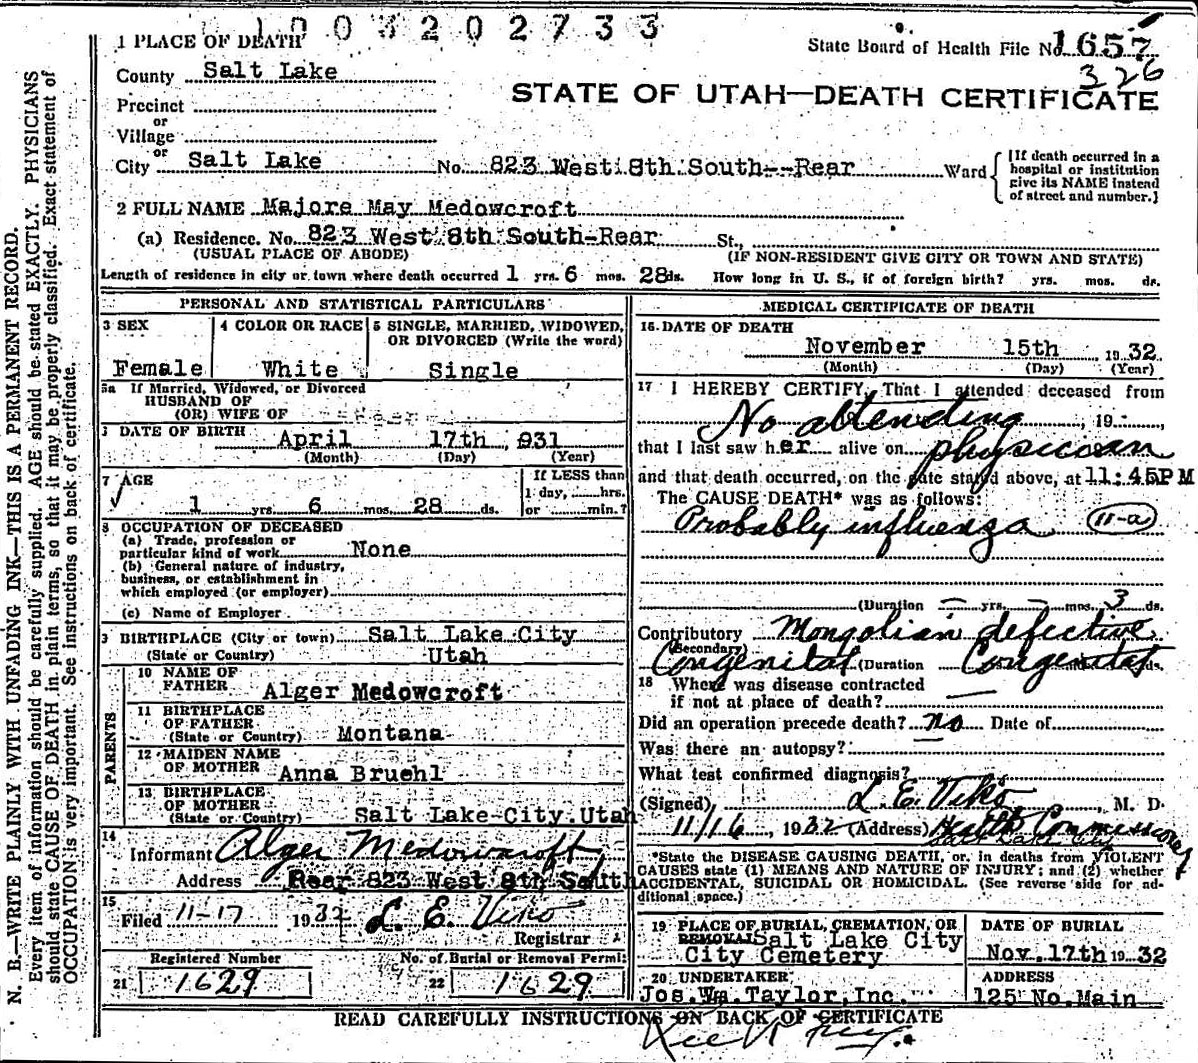 1003202733
1 PLACE OF DEATH
State Board of Health File No. 1657
326
County Salt Lake
STATE OF UTAH—DEATH CERTIFICATE
Precinct
or
Village
or
City Salt Lake No. 823 West 8th South--Rear Ward
[If death occurred in a hospital or institution give its NAME instead of street and number.]
2 FULL NAME Majore May Medowcroft
(a) Residence. No. 823 West 8th South-Rear St.,
(USUAL PLACE OF ABODE) (IF NON-RESIDENT GIVE CITY OR TOWN AND STATE)
Length of residence in city or town where death occurred 1 yrs. 6 mos. 28 ds. How long in U. S., if of foreign birth? yrs. mos. ds.
PERSONAL AND STATISTICAL PARTICULARS
3 SEX
Female
4 COLOR OR RACE
White
5 SINGLE, MARRIED, WIDOWED,
OR DIVORCED (Write the word)
Single
5a If Married, Widowed, or Divorced
HUSBAND OF
(OR) WIFE OF
DATE OF BIRTH April 17th, 931
(Month) (Day) (Year)
7 AGE
1 yrs. 6 mos. 28 ds.
If LESS than
1 day, hrs.
or min.?
8 OCCUPATION OF DECEASED
(a) Trade, profession or
particular kind of work None
(b) General nature of industry,
business, or establishment in
which employed (or employer)
(c) Name of Employer
9 BIRTHPLACE (City or town) Salt Lake City
(State or Country) Utah
PARENTS
10 NAME OF
FATHER Alger Medowcroft
11 BIRTHPLACE
OF FATHER
(State or Country) Montana
12 MAIDEN NAME
OF MOTHER Anna Bruehl
13 BIRTHPLACE
OF MOTHER
(State or Country) Salt Lake-City.Utah
14
Informant Alger Medowcroft
Address Rear 823 West 8th South
15
Filed 11-17 1932 L. E. Viko
Registrar
Registered Number
21 1629
No. of Burial or Removal Permit
22 1629
MEDICAL CERTIFICATE OF DEATH
16 DATE OF DEATH
November 15th 1932
(Month) (Day) (Year)
17 I HEREBY CERTIFY, That I attended deceased from
No attending , 19
that I last saw her alive on physician
and that death occurred, on the date stated above, at 11:45PM
The CAUSE DEATH* was as follows:
Probably influenza 11-a
(Duration — yrs. — mos. 3 ds.
Contributory Mongolian defective
(Secondary)
Congenital (Duration Congenital ds.
18 Where was disease contracted
if not at place of death? —
Did an operation precede death? no Date of
Was there an autopsy?
What test confirmed diagnosis?
(Signed) L. E. Viko, M. D.
11/16, 1932 (Address) Health Commissioner
Salt Lake City
*State the DISEASE CAUSING DEATH, or, in deaths from VIOLENT
CAUSES state (1) MEANS AND NATURE OF INJURY; and (2) whether
ACCIDENTAL, SUICIDAL OR HOMICIDAL. (See reverse side for ad-
ditional space.)
19 PLACE OF BURIAL, CREMATION, OR
REMOVAL Salt Lake City
City Cemetery
DATE OF BURIAL
Nov. 17th 1932
20 UNDERTAKER
Jos. Wm. Taylor, Inc.
ADDRESS
125 No. Main
READ CAREFULLY INSTRUCTIONS ON BACK OF CERTIFICATE
N. B.—WRITE PLAINLY WITH UNFADING INK—THIS IS A PERMANENT RECORD.
Every item of information should be carefully supplied. AGE should be stated EXACTLY. PHYSICIANS
should state CAUSE OF DEATH in plain terms, so that it may be properly classified. Exact statement of
OCCUPATION is very important. See instructions on back of certificate.